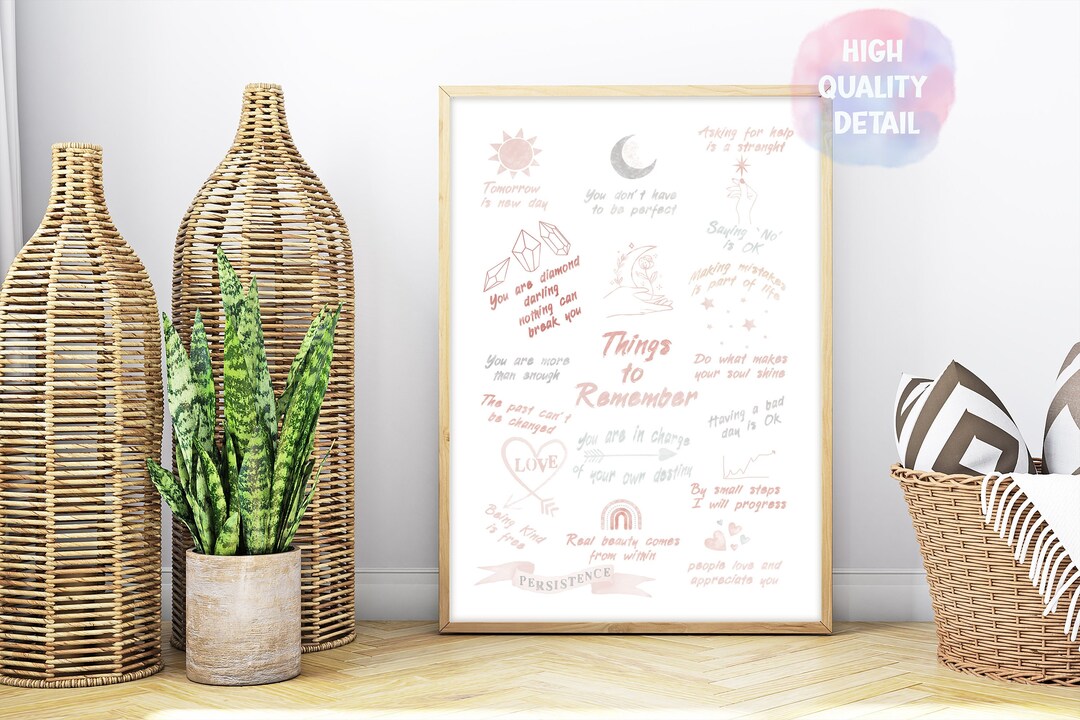 HIGH
QUALITY
DETAIL
Asking for help
is a strenght
Tomorrow
is new day
You don't have
to be perfect
Saying 'No'
is OK
You are diamond
darling
nothing can
break you
Making mistakes
is part of life
Things
to
Remember
You are more
than enough
Do what makes
your soul shine
The past can't
be changed
Having a bad
day is OK
you are in charge
of your own destiny
LOVE
By small steps
I will progress
Being Kind
is free
Real beauty comes
from within
people love and
appreciate you
PERSISTENCE